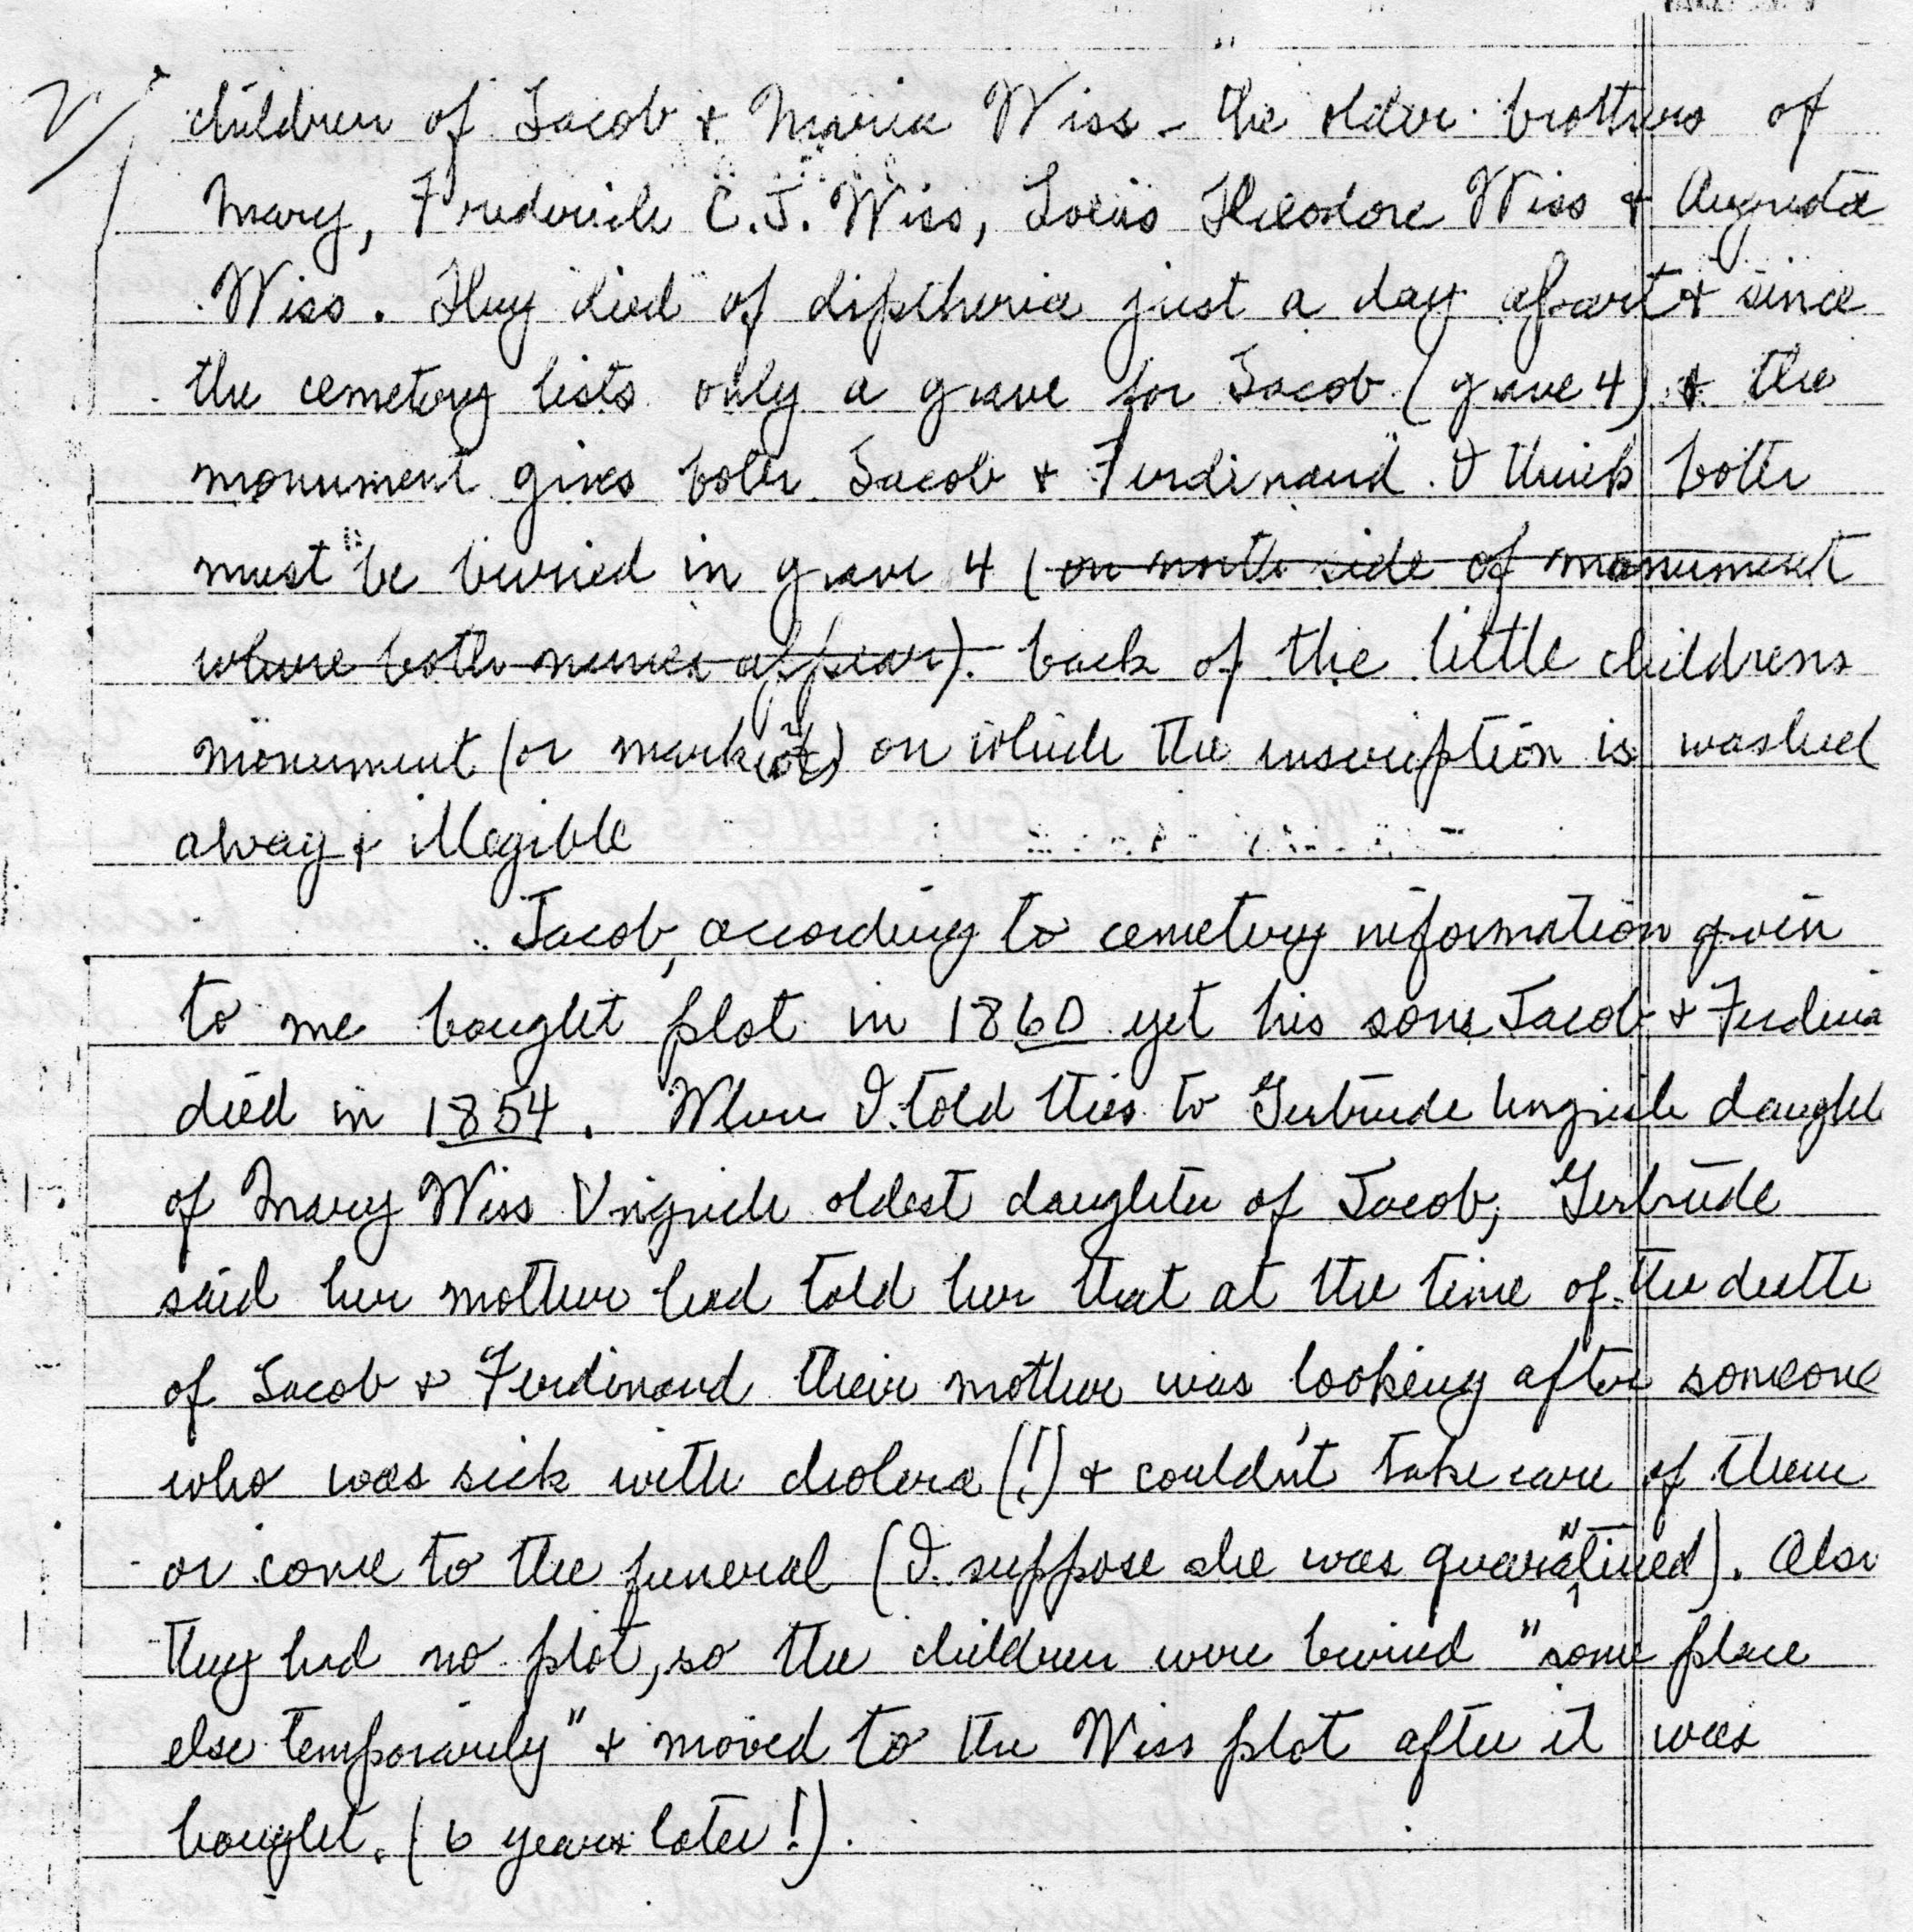 V/
children of Jacob & Maria Wiss - the older brothers of
Mary, Frederick C.J. Wiss, Louis Theodore Wiss & Augusta
Wiss. They died of diptheria just a day apart & since
the cemetery lists only a grave for Jacob (grave 4) & the
monument gives both Jacob & Ferdinand. I think both
must be buried in grave 4 (on north side of monument
where both names appear). back of the little childrens
monument (or marker) on which the inscription is washed
away & illegible
Jacob, according to cemetery information given
to me bought plot in 1860 yet his sons Jacob & Ferdina
died in 1854. When I told this to Gertrude Ungrich daught
of Mary Wiss Ungrich oldest daughter of Jacob, Gertrude
said her mother had told her that at the time of the death
of Jacob & Ferdinand their mother was looking after someone
who was sick with cholera (!) & couldn't take care of them
or come to the funeral (I suppose she was quarantined). Also
they had no plot, so the children were buried "some place
else temporarily" & moved to the Wiss plot after it was
bought. (6 years later!).